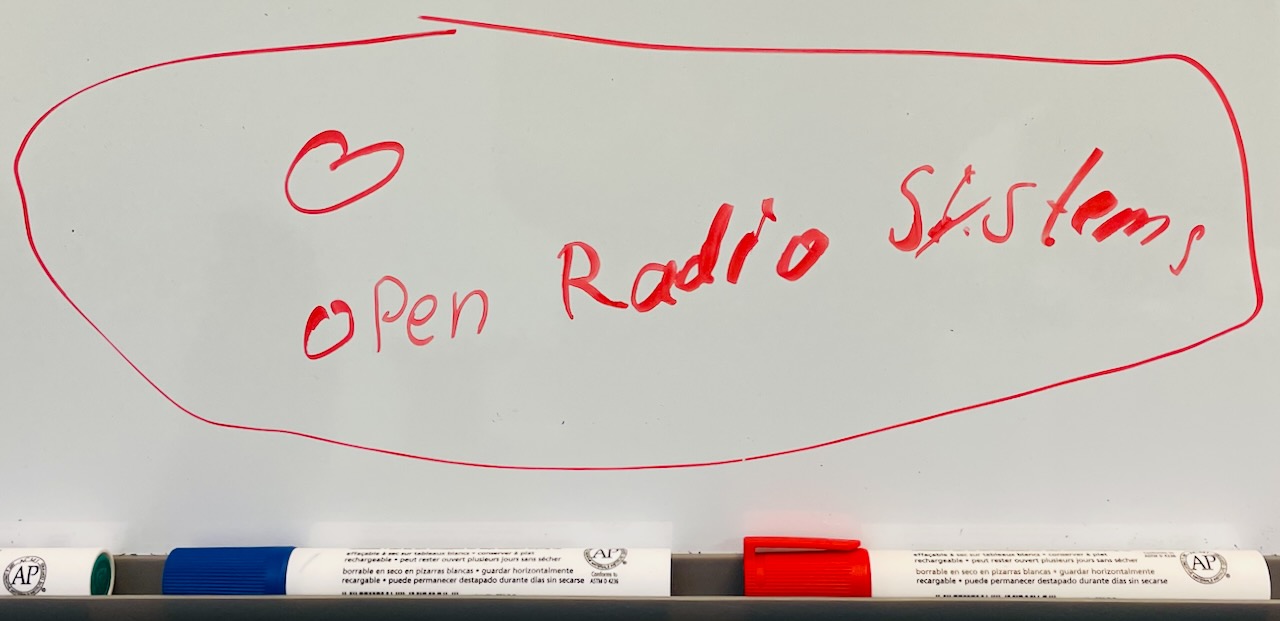 open Radio Systems
effaçable à sec sur tableaux blancs • conserver à plat
rechargeable • peut rester ouvert plusieurs jours sans sécher
borrable en seco en pizarras blancas • guardar horizontalmente
recargable • puede permanecer destapado durante días sin secarse
AP
Conforms to
ASTM D 4236
effaçable à sec sur tableaux blancs • conserver à plat
rechargeable • peut rester ouvert plusieurs jours sans sécher
borrable en seco en pizarras blancas • guardar horizontalmente
recargable • puede permanecer destapado durante días sin secarse
Conforms to
ASTM D 4236
AP
AP